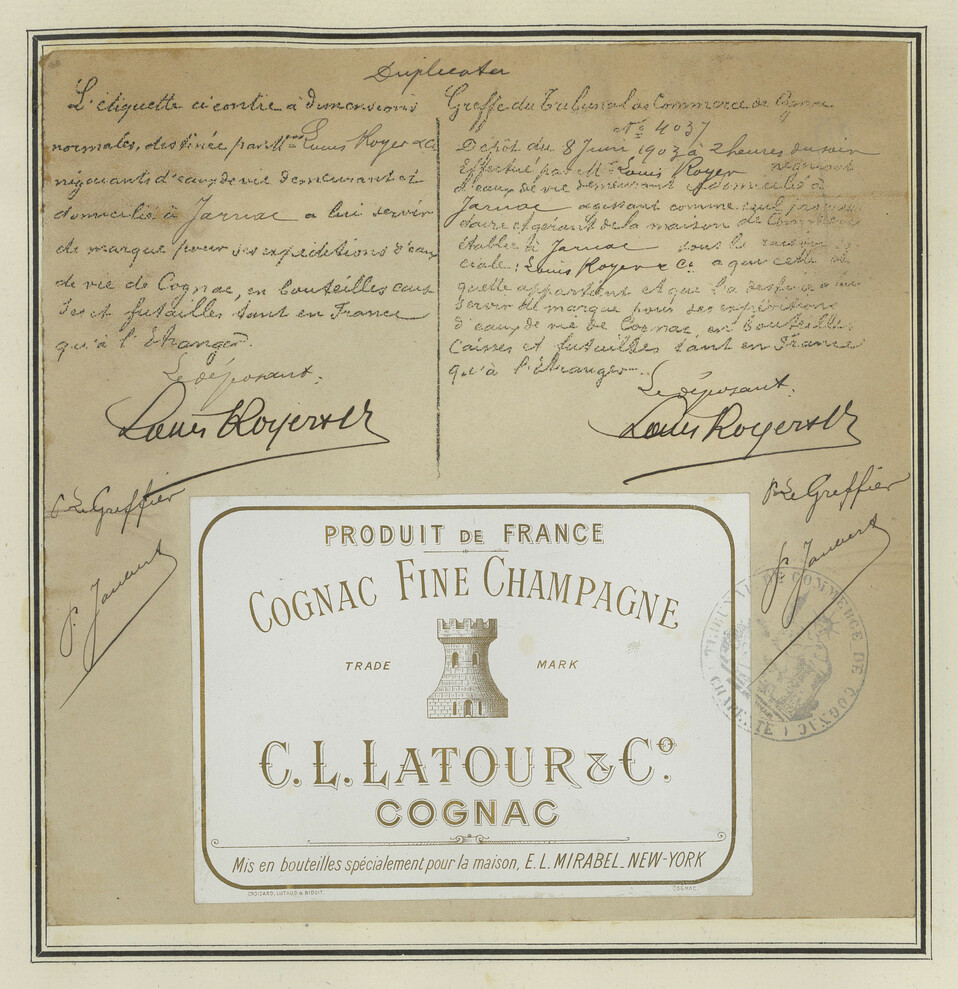 Duplicata
L'étiquette ci contre à dimensions
normales, destinée par Mr Louis Royer & Co
négociants d'eaux de vie demeurant et
domiciliés à Jarnac a lui servir
de marque pour ses expéditions d'eaux
de vie de Cognac, en bouteilles cais
ses et futailles tant en France
qu'à l'étranger.
Le déposant:
Louis Royer & Co
pr Le Greffier
P. Jaubert
Greffe du Tribunal de Commerce de Cognac
No 4037
Dépôt du 8 Juin 1903 à 2 heures du soir
Effectué par Mr Louis Royer négociant
d'eaux de vie demeurant et domicilié à
Jarnac agissant comme seul proprié
taire et gérant de la maison de Commerce
établie à Jarnac sous la raison so
ciale: Louis Royer & Co a que cette éti
quette appartient et que la destine à lui
servir de marque pour ses expéditions
d'eaux de vie de Cognac en bouteilles
Caisses et futailles tant en France
qu'à l'étranger.
Le déposant:
Louis Royer & Co
pr Le Greffier
P. Jaubert
TRIBUNAL DE COMMERCE DE COGNAC
(CHARENTE)
PRODUIT DE FRANCE
COGNAC FINE CHAMPAGNE
TRADE MARK
C. L. LATOUR & Co.
COGNAC
Mis en bouteilles spécialement pour la maison, E. L. MIRABEL_NEW-YORK
CROIZARD, LUTAUD & BIDUIT. COGNAC.